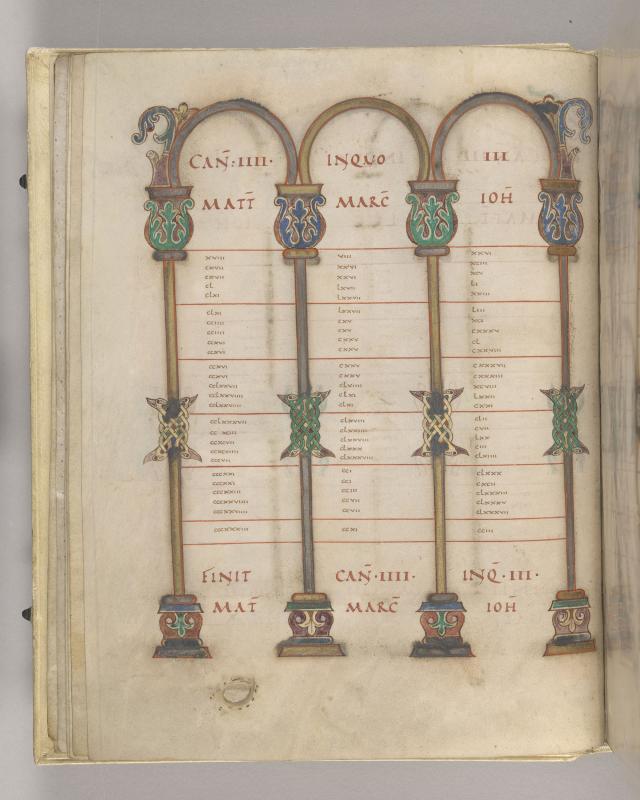 CAN̄·IIII· INQUO III
MATT̄ MARC̄ IOH̄
xviii viii xxvi
cxvii xxvi xciii
cxvii xxvi xcv
cl lxvii li
clxi lxxvii xxiii
clxi lxxvii liii
cciiii cxv xci
cciiii cxv cxxxv
ccxvi cxxv cl
ccxvi cxxv cxxviii
ccxvi cxxv cxxxvii
ccxvi cxxv cxxxiii
cclxxvii clviiii xcviii
cclxxviiii clxi lxxii
cclxxviiii clxi cxxi
cclxxxvii clxviii clii
cc xciii clxxiiii cvii
ccxcvii clxxviiii lxx
ccxcviiii clxxx ciii
cccvii clxxxviiii clxiiii
cccxxi cci clxxx
cccxxi cci cxcii
cccxxiii cciii clxxxiii
cccxxviiii ccvii clxxxv
cccxxviiii ccvii clxxxvii
cccxxxiii ccxi cciii
FINIT CAN̄·IIII· INQ̄·III·
MAT̄ MARC̄ IOH̄